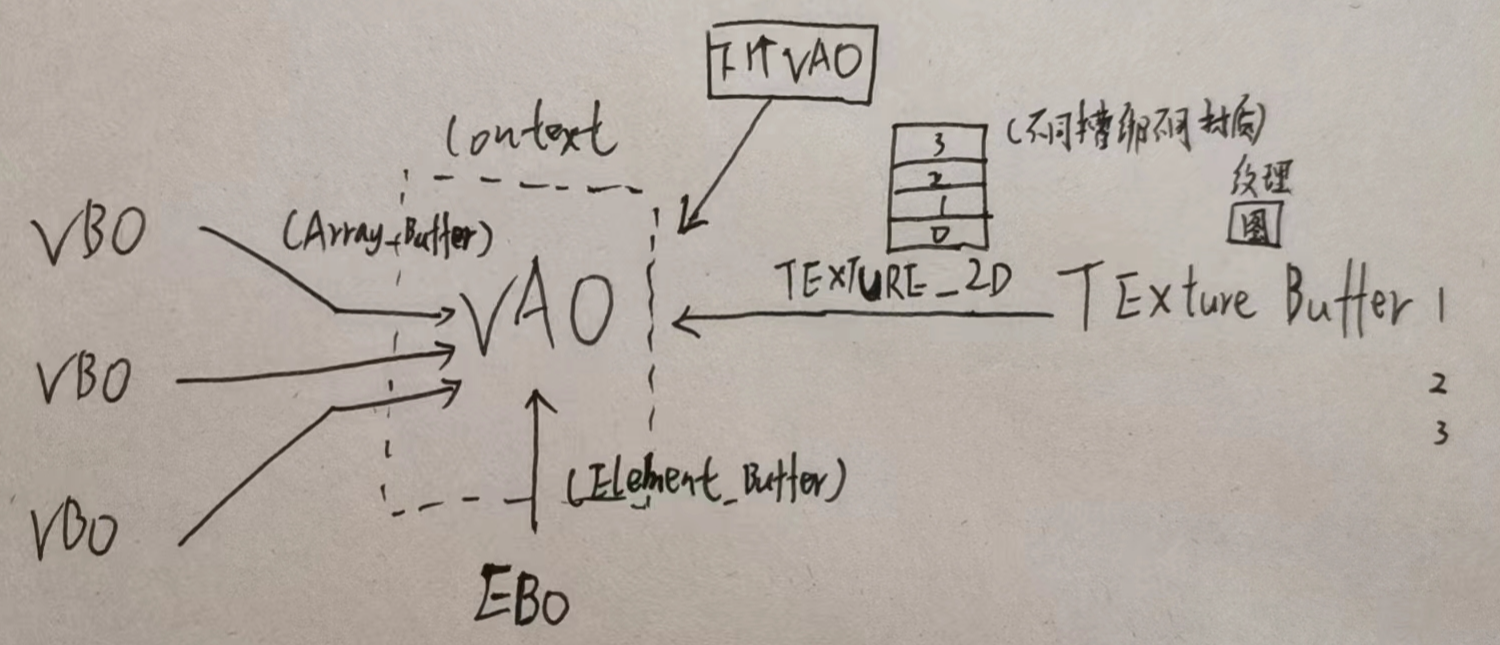 下个VAO
Context
3
2
1
0
(不同槽绑不同材质)
纹理
图
VBO
(Array_Buffer)
VAO
TEXTURE_2D
TExture Buffer 1
2
3
VBO
VBO
(Element_Buffer)
EBO